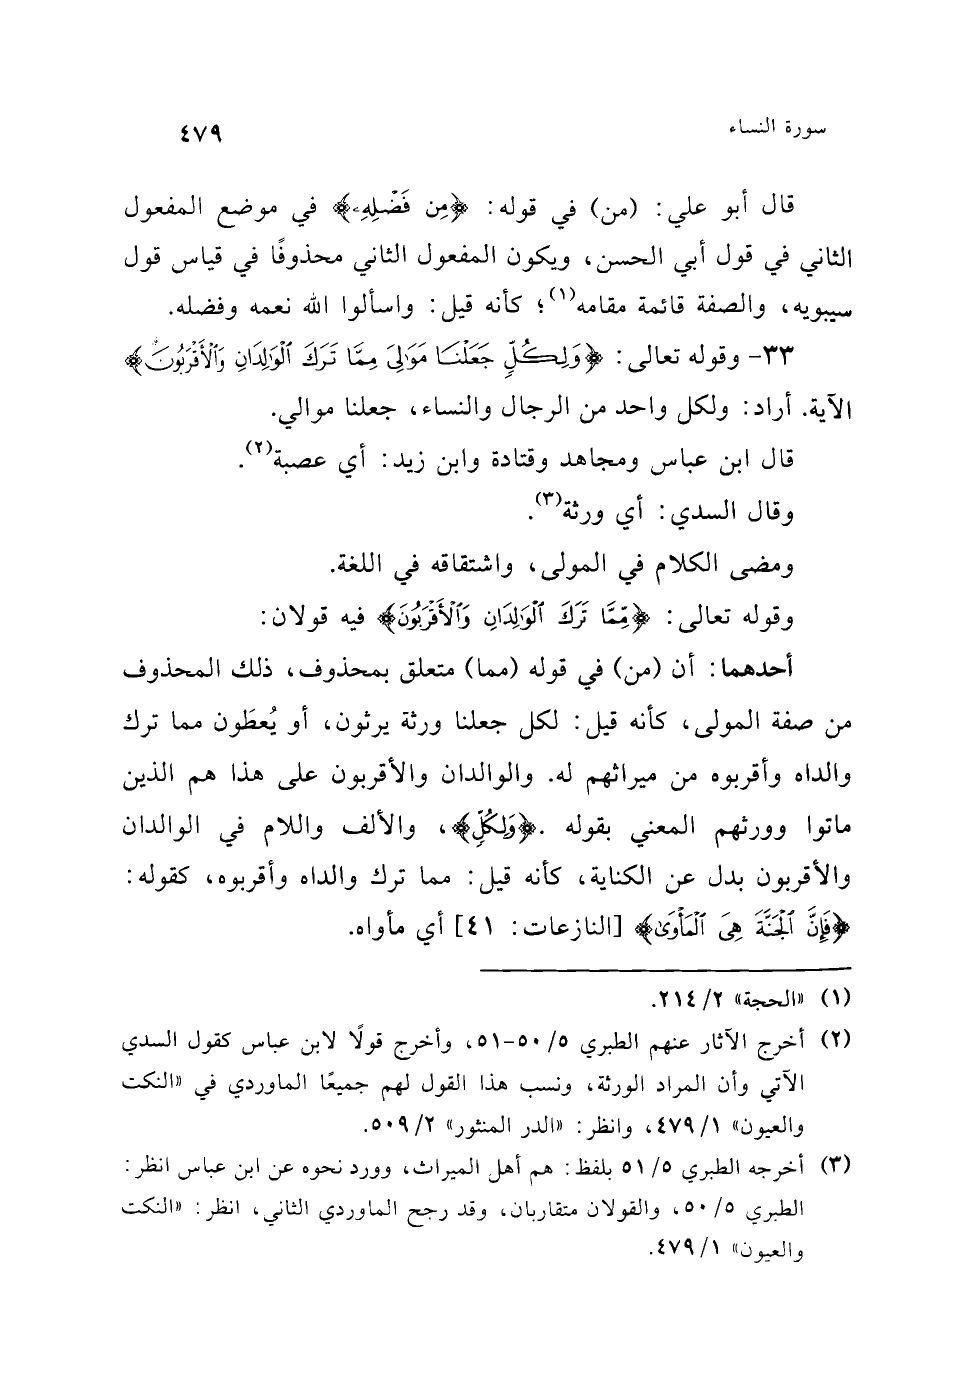 سورة النساء
٤٧٩
قال أبو علي: (من) في قوله: ﴿مِن فَضْلِهِۦ﴾ في موضع المفعول
الثاني في قول أبي الحسن، ويكون المفعول الثاني محذوفًا في قياس قول
سيبويه، والصفة قائمة مقامه(١)؛ كأنه قيل: واسألوا الله نعمه وفضله.
٣٣- وقوله تعالى: ﴿وَلِكُلٍّ جَعَلْنَا مَوَٰلِىَ مِمَّا تَرَكَ ٱلْوَٰلِدَانِ وَٱلْأَقْرَبُونَ﴾
الآية. أراد: ولكل واحد من الرجال والنساء، جعلنا موالي.
قال ابن عباس ومجاهد وقتادة وابن زيد: أي عصبة(٢).
وقال السدي: أي ورثة(٣).
ومضى الكلام في المولى، واشتقاقه في اللغة.
وقوله تعالى: ﴿مِّمَّا تَرَكَ ٱلْوَٰلِدَانِ وَٱلْأَقْرَبُونَ﴾ فيه قولان:
أحدهما: أن (من) في قوله (مما) متعلق بمحذوف، ذلك المحذوف
من صفة المولى، كأنه قيل: لكل جعلنا ورثة يرثون، أو يُعطَون مما ترك
والداه وأقربوه من ميراثهم له. والوالدان والأقربون على هذا هم الذين
ماتوا وورثهم المعني بقوله .﴿وَلِكُلٍّ﴾، والألف واللام في الوالدان
والأقربون بدل عن الكناية، كأنه قيل: مما ترك والداه وأقربوه، كقوله:
﴿فَإِنَّ ٱلْجَنَّةَ هِىَ ٱلْمَأْوَىٰ﴾ [النازعات: ٤١] أي مأواه.
(١) «الحجة» ٢/ ٢١٤.
(٢) أخرج الآثار عنهم الطبري ٥/ ٥٠-٥١، وأخرج قولًا لابن عباس كقول السدي
الآتي وأن المراد الورثة، ونسب هذا القول لهم جميعًا الماوردي في «النكت
والعيون» ١/ ٤٧٩، وانظر: «الدر المنثور» ٢/ ٥٠٩.
(٣) أخرجه الطبري ٥/ ٥١ بلفظ: هم أهل الميراث، وورد نحوه عن ابن عباس انظر:
الطبري ٥/ ٥٠، والقولان متقاربان، وقد رجح الماوردي الثاني، انظر: «النكت
والعيون» ١/ ٤٧٩.